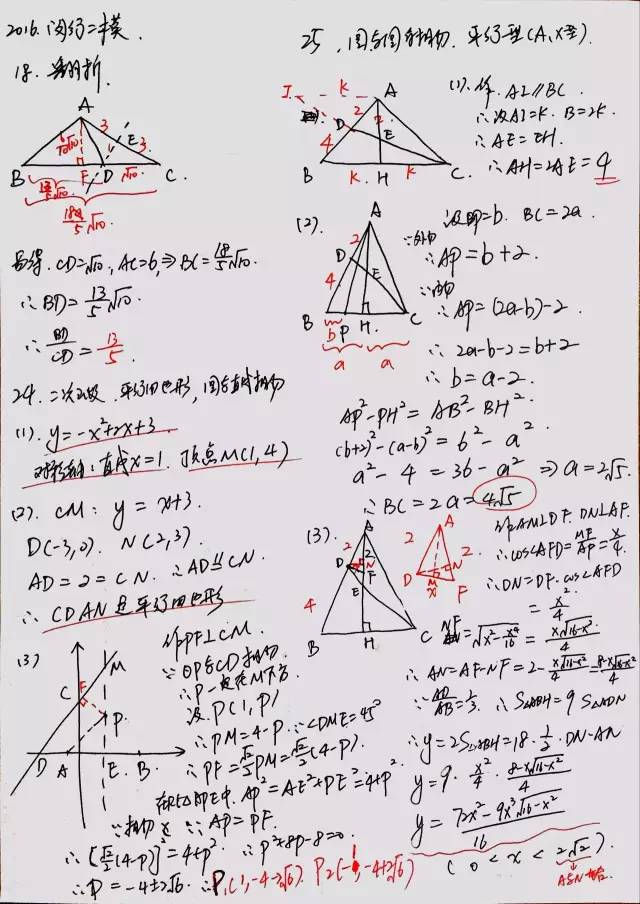 2016.闵行二模.
18. 翻折.
A
3
E
3
B
F
D
√10
C.
13/5√10
18/5√10.
易得. CD=√10, AC=6, ⇒ BC=18/5√10.
∴ BD=13/5√10.
∴ BD/CD=13/5.
24. 二次函数. 平行四边形, 圆与直线相切
(1). y=-x²+2x+3.
对称轴:直线x=1. 顶点M(1,4)
(2). CM: y=x+3.
D(-3,0). N(2,3).
AD=2=CN. ∴AD⫽CN.
∴ CDAN是平行四边形
(3)
M
C
F
P.
D
A
E
B
作PF⊥CM.
∵ ⊙P与CD相切.
设P(1,P)
∴ PM=4-P. ∵∠DME=45°
∴ PF=√2/2PM=√2/2(4-P).
在Rt△APE中. AP²=AE²+PE²=4+P².
∵相切 ∴ AP=PF.
∴ [√2/2(4-P)]²=4+P². ∴ P²+8P-8=0.
∴ P=-4±2√6. ∴P₁(1,-4-2√6). P₂(1,-4+2√6)
25. 圆与圆相切. 平行型(A,X型).
I
K
A
2
D
4
E
B
K
H
K
C
(1). 作. AI∥BC.
∴设AI=K. B=2K.
∴ AE=EH.
∴ AH=2AE=4
(2)
A
2
D
E
4
B
P
H.
C
b
a
a
设BP=b. BC=2a.
∵外切
∴AP=b+2.
∵内切
∴AP=(2a-b)-2.
∴ 2a-b-2=b+2
∴ b=a-2.
AP²-PH²=AB²-BH².
(b+2)²-(a-b)²=6²-a².
a²-4=36-a² ⇒ a=2√5.
∴ BC=2a=4√5
(3).
A
2
2
D
N
F
E
4
B
H
C
A
2
2
D
N
M
x
F
作AM⊥DF. DN⊥AF.
∴ cos∠AFD=MF/AF=x/4.
∴ DN=DF·cos∠AFD
=x²/4
NF=√(x²-x⁴/16)=x√(16-x²)/4
∴ AN=AF-NF=2-x√(16-x²)/4=(8-x√(16-x²))/4
∵ AD/AB=1/3. ∴ S△ABH=9S△ADN
∴ y=2S△ABH=18·1/2·DN·AN
y=9·x²/4·(8-x√(16-x²))/4
y=(72x²-9x³√(16-x²))/16
(0<x<2√2).